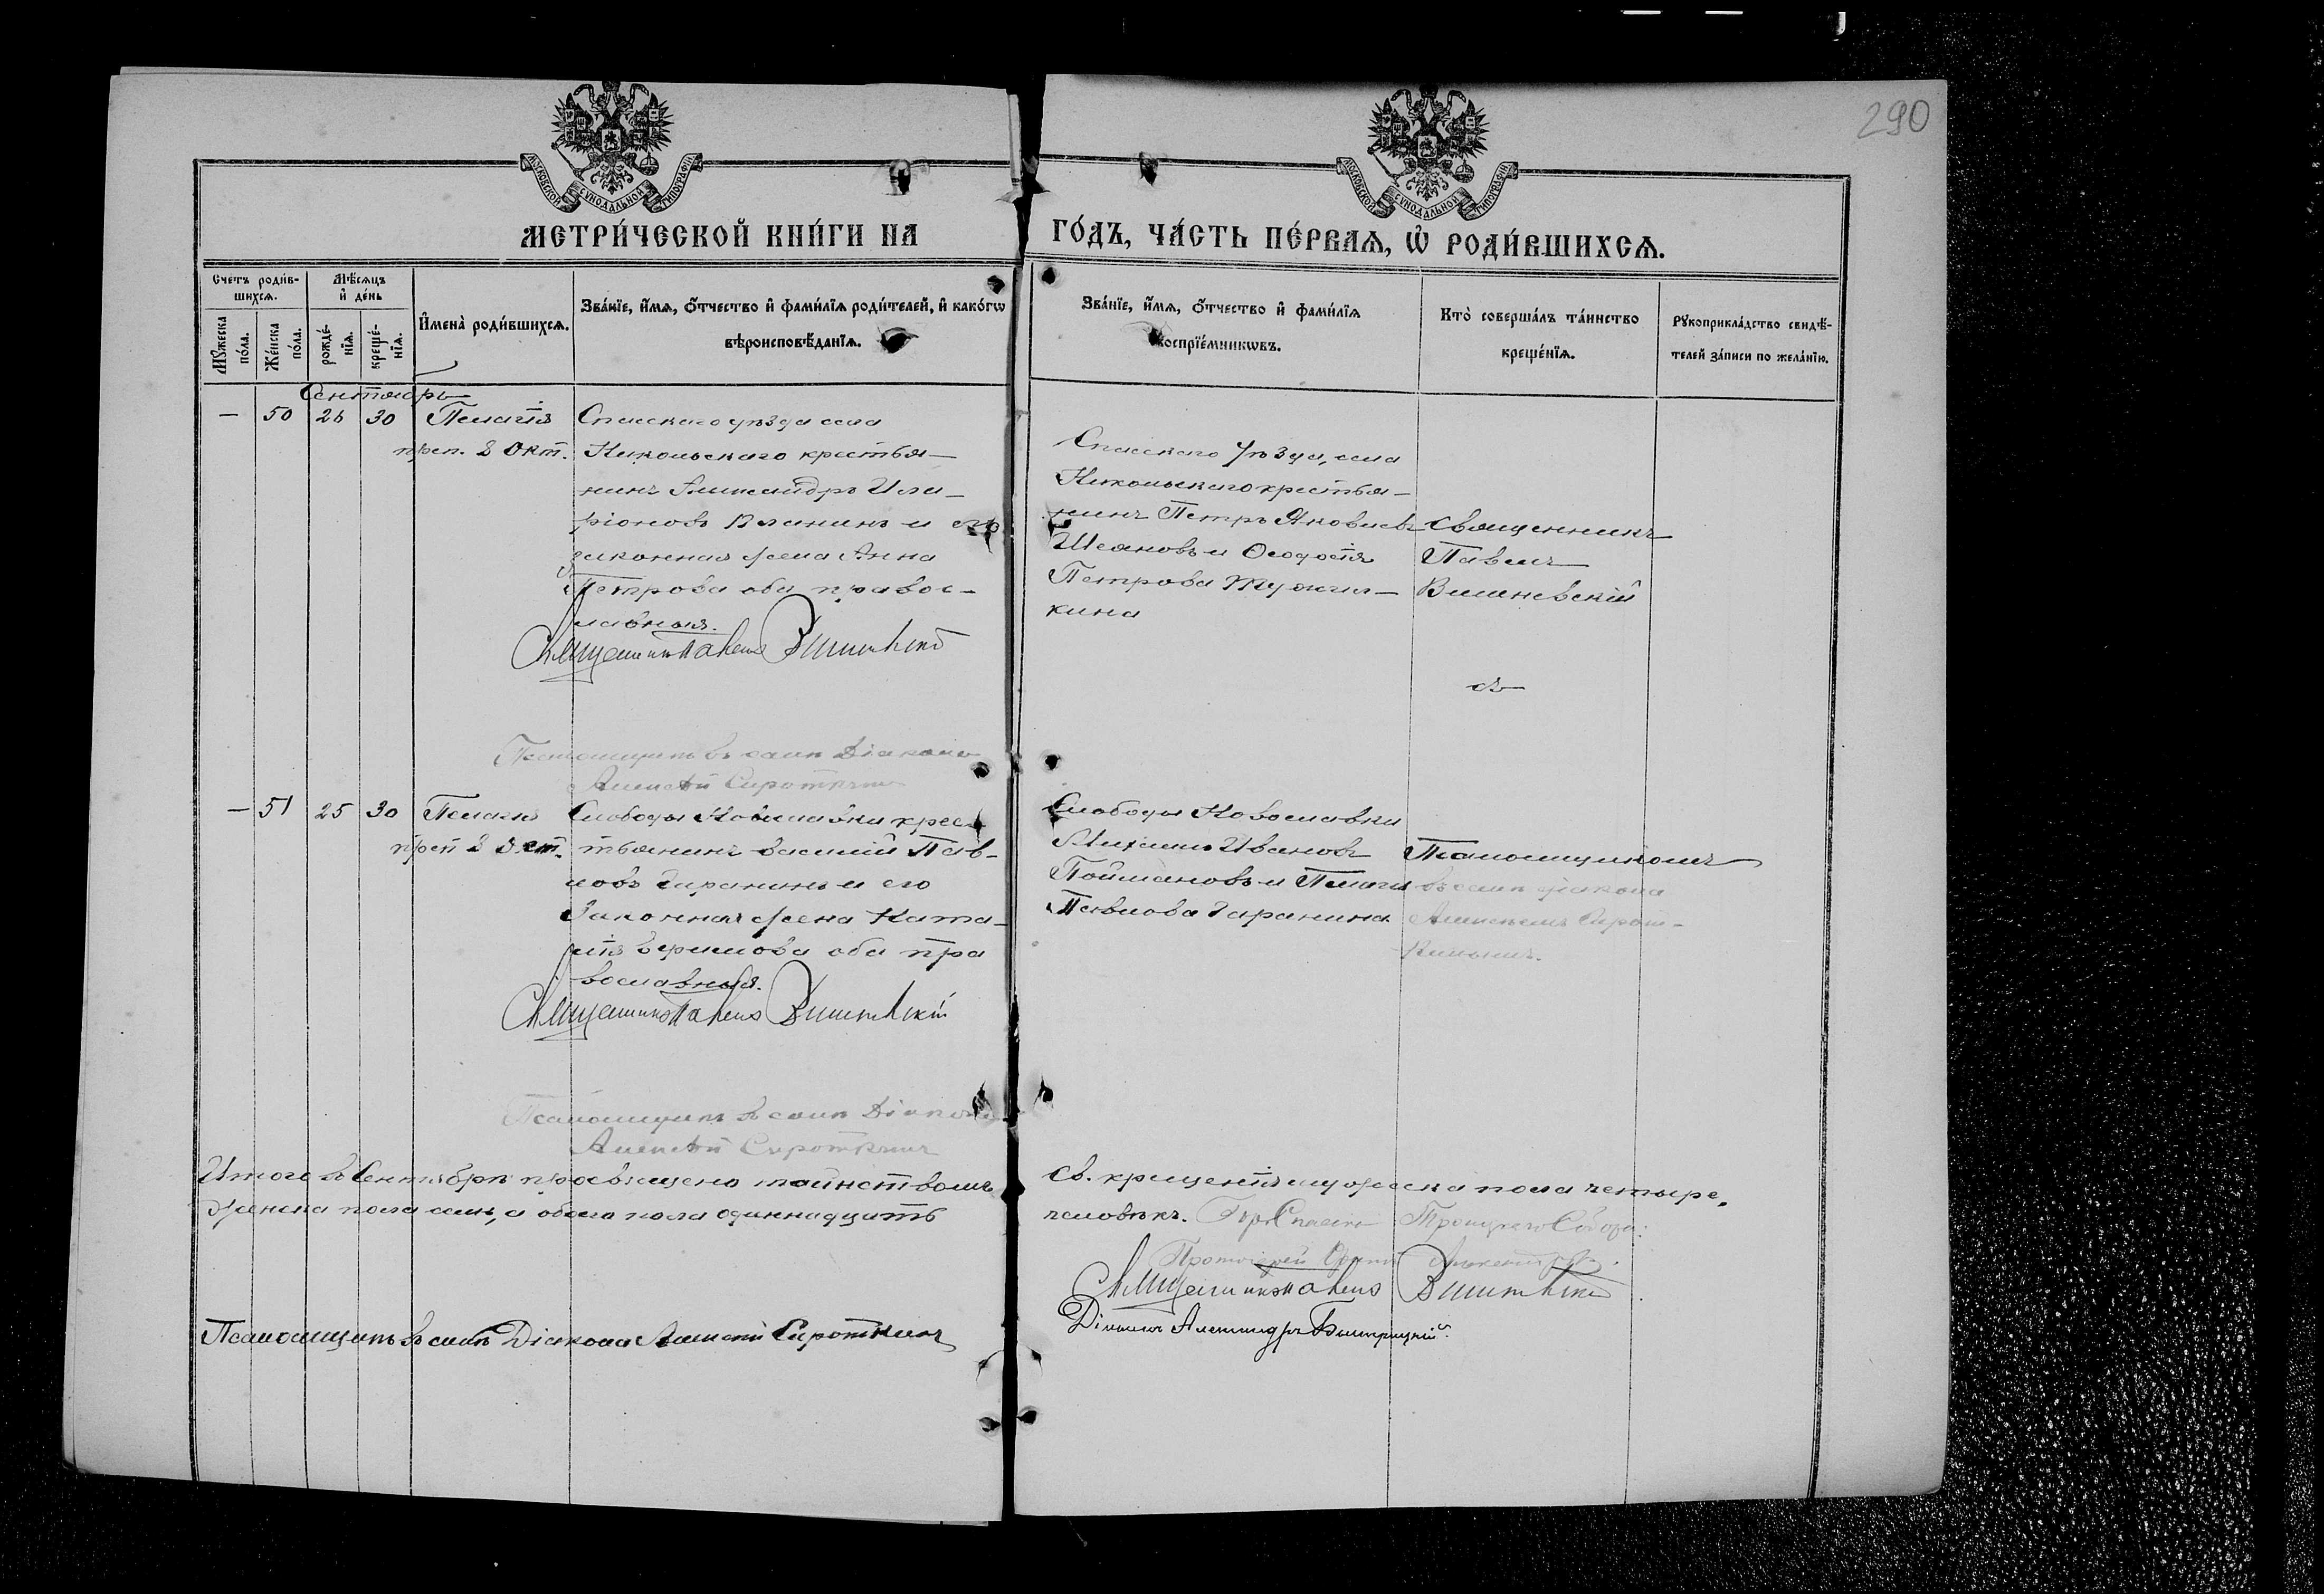 290
МОСКОВСКОЙ СѴНОДАЛЬНОЙ ТИПОГРАФІИ
МОСКОВСКОЙ СѴНОДАЛЬНОЙ ТИПОГРАФІИ
МЕТРИ́ЧЕСКОЙ КНИ́ГИ НА
ГО́ДЪ, ЧА́СТЬ ПЕ́РВАѦ, Ѡ҆ РОДИ́ВШИХСѦ.
Счетъ роди́в-
шихсѧ.
Мѣ́сѧцъ
и҆ де́нь
Мꙋ́жеска
по́ла.
Же́нска
по́ла.
рожде́-
нїѧ.
креще́-
нїѧ.
И҆мена̀ роди́вшихсѧ.
Зва́нїе, и҆́мѧ, ѻ҆́тчество и҆ фами́лїѧ роди́телей, и҆ како́гѡ
вѣроисповѣ́данїѧ.
Зва́нїе, и҆́мѧ, ѻ҆́тчество и҆ фами́лїѧ
воспрїе́мникѡвъ.
Кто̀ соверша́лъ та́инство
креще́нїѧ.
Рꙋкоприкла́дство свидѣ́-
телей за́писи по жела́нїю.
Сентябрь
— 50 26 30 Пелагія
преп. 8 Окт.
Спасскаго уѣзда села
Никольскаго крестья-
нинъ Александръ Ила-
ріоновъ и его
законная жена Анна
Петрова оба правос-
лавныя.
Священникъ Павелъ Вишневскій
Псаломщикъ въ санѣ Діакона
Алексѣй Сироткинъ
Спасскаго уѣзда, села
Никольскаго крестья-
нинъ Петръ Яковлевъ
и Ѳеодосія
Петрова
кина
Священникъ
Павелъ
Вишневскій
— 51 25 30 Пелагія
преп 8 Окт.
Слободы Новославки крес-
тьянинъ Василій Пав-
ловъ Гаранинъ и его
законная жена Ната-
лія Ефимова оба пра
вославныя.
Священникъ Павелъ Вишневскій
Псаломщикъ въ санѣ Діакона
Алексѣй Сироткинъ
Слободы Новославки
Михаилъ Ивановъ
Поймановъ и Пелагія
Павлова Гаранина
Псаломщикомъ
въ санѣ діакона
Алексѣемъ Сирот-
кинымъ.
Итого въ Сентябрѣ просвѣщено таинствомъ
женска пола семь, а обоего пола одиннадцать
Св. крещенія мужеска пола четыре,
человѣкъ. Гор. Спасска Троицкаго Собора:
Протоіерей
Священникъ Павелъ Вишневскій
Діаконъ Александръ
Псаломщикъ въ санѣ Діакона Алексѣй Сироткинъ